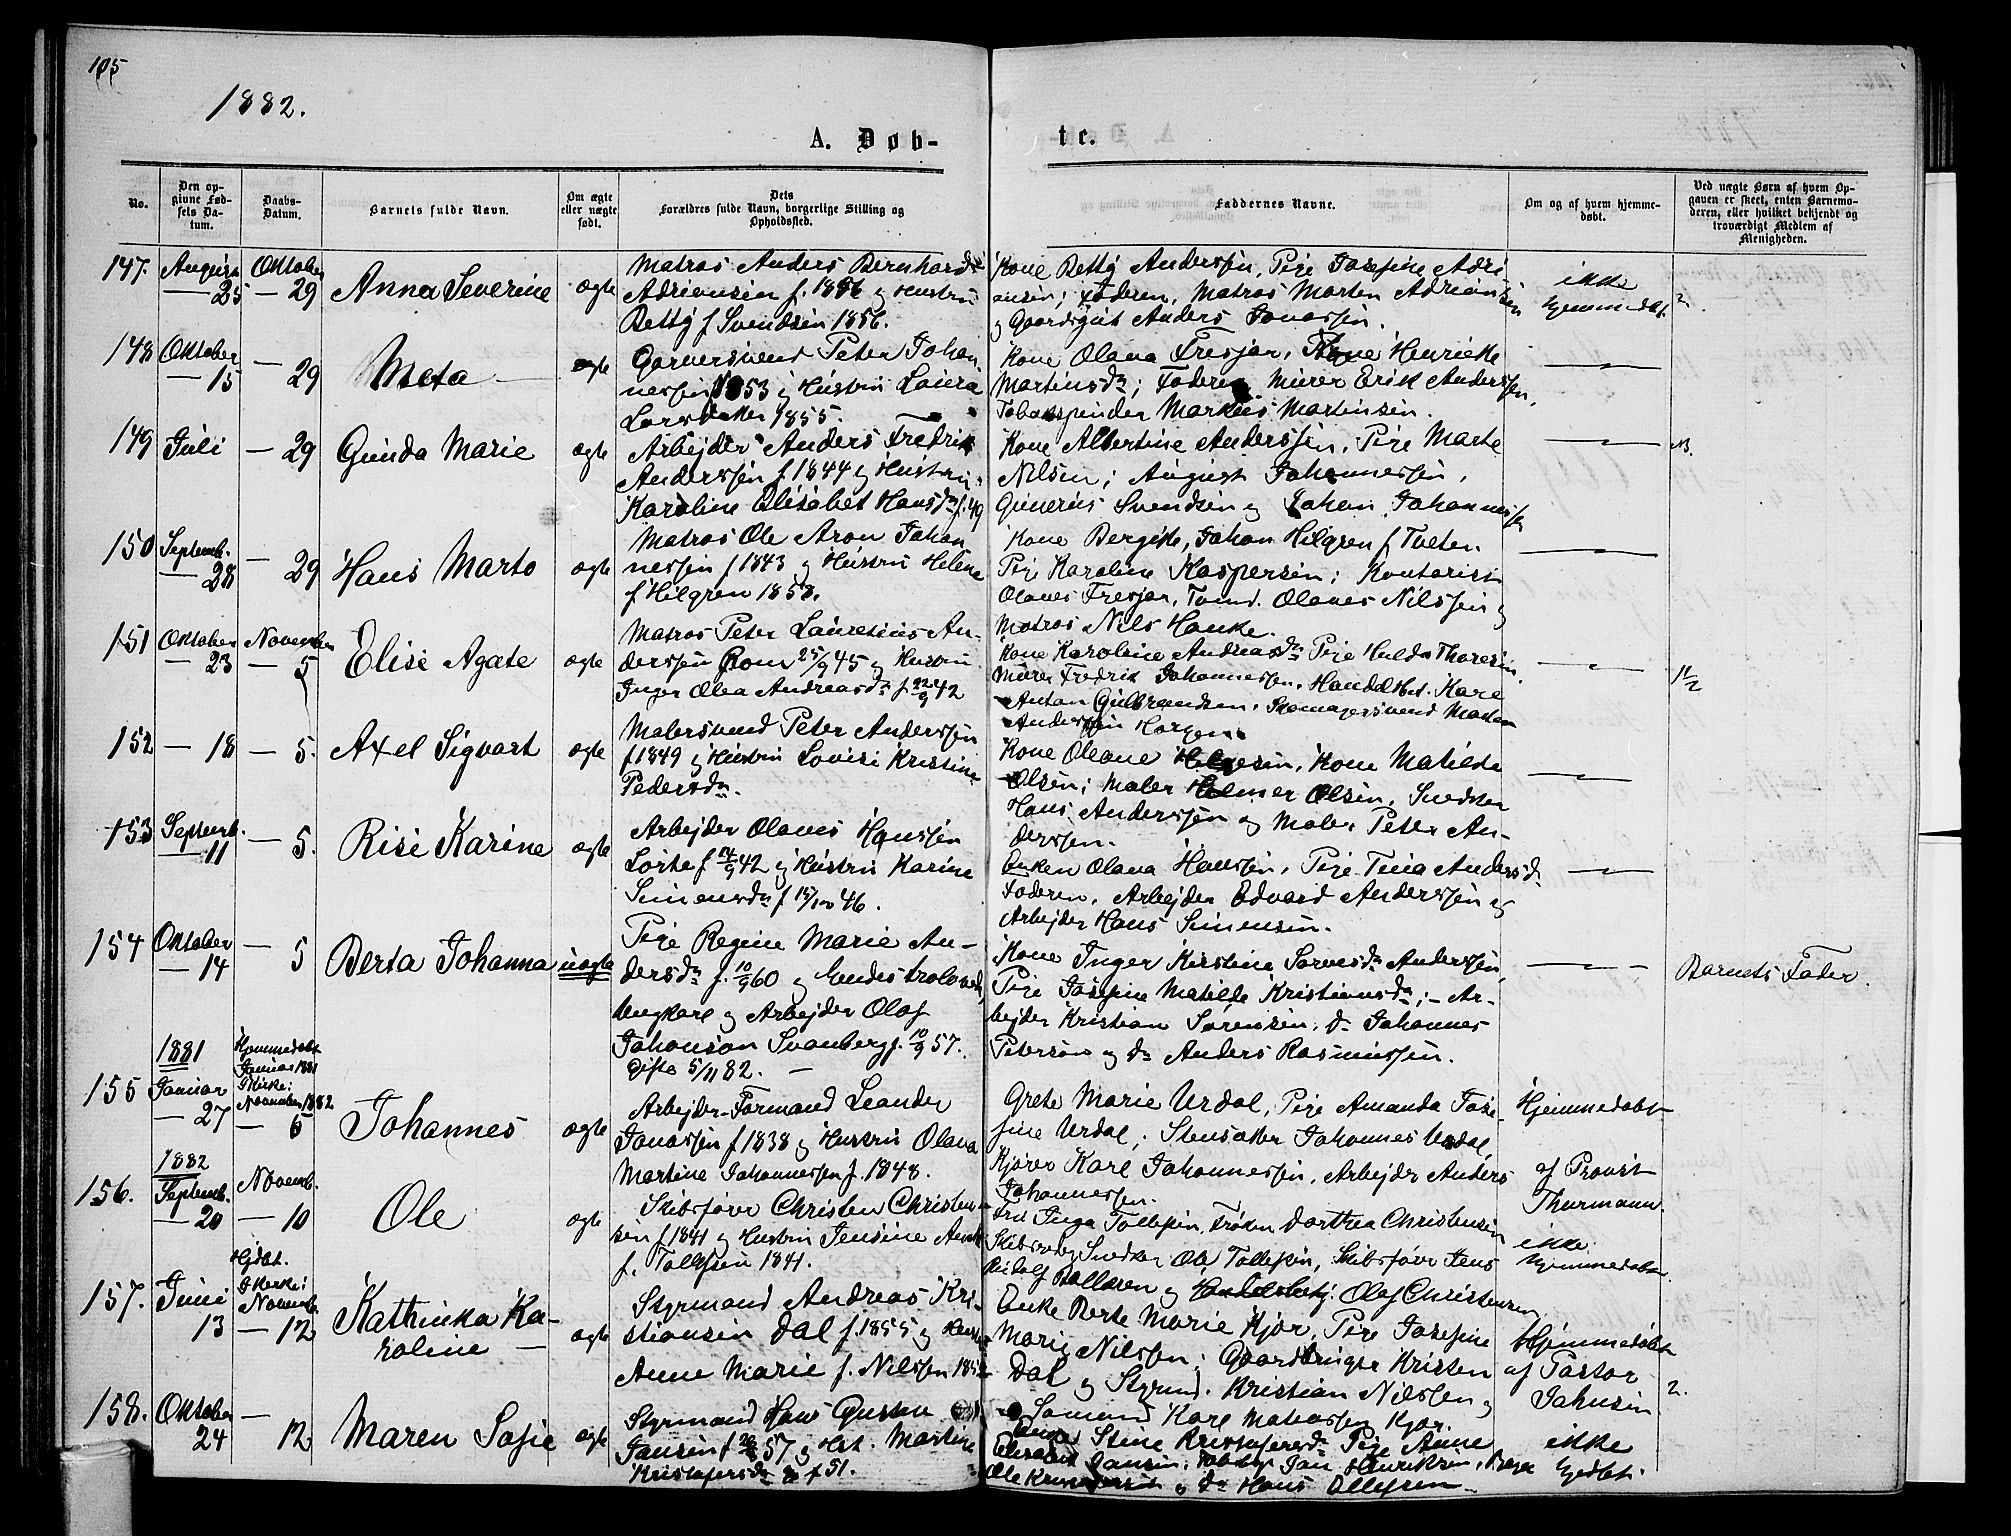 105
1882.
A. Døb-
te.
No.
Den op-
givne Fød-
sels Da-
tum.
Daabs-
Datum.
Barnets fulde Navn.
Om ægte
eller uægte
født.
Dets
Forældres fulde Navn, borgerlige Stilling og
Opholdssted.
Faddernes Navne.
Om og af hvem hjemme-
døbt.
Ved uægte Børn af hvem Op-
gaven er skeet, enten Barnemo-
deren, eller hvilket bekjendt og
troværdigt Medlem af
Menigheden.
147. August
25
Oktober
29
Anna Severine
ægte
Matros Anders Bernhard
Adriansen f. 1856 og Hustru
Betty f Svendsen 1856.
Kone Betty Anderssen, Pige Josefine Adri
ansen; Faderen, Matros Morten Adriansen
og Gaardsgut Anders Jonassen.
ikke
hjemmedøbt.
2.
148 Oktober
15
29
Meta
ægte
Garversvend Peter Johan
nessen f 1853 og Hustru Laura
1855.
Kone Olava Fresjar, Kone Henrieke
Martinsdn; Faderen, Murer Erik Anderssen,
Tobakspinder Markus Martinsen.
149 Juli
29
Gunda Marie
ægte
Arbejder Anders Fredrik
Anderssen f 1844 og Hustru
Karoline Elisabet Hansdn f. 49
Kone Albertine Anderssen, Pige Marte
Nilsen; August Johannessen,
Gunerius Svendsen og Johan Johannessen
150 Septemb.
28
29
Hans Marto
ægte
Matros Ole Aron Johan
nessen f 1843 og Hustru Helene
f Hilgren 1858.
Kone Bergite, Johan Hilgren f Tveten
Pige Karoline Kaspersen; Kontorist
Olaves Fresjar, Tømd. Olaves Nilssen og
Matros Nils Hauke.
151 Oktober
23
November
5
Elise Agate
ægte
Matros Peter Lauretius An-
derssen Rom 25/9 45 og Hustru
Inger Olea Andreasdn f. 22/9 42
Kone Karoline Andreasdn Pige Hulda Thoresen,
Murer Fredrik Johannessen, Handelsbet. Kare
Anton Gulbrandsen, Skomagersvend Morten
Anderssen Horgen.
11/2
152 18
5.
Axel Sigvart
ægte
Malersvend Peter Anderssen
f 1849 og Hustru Lovise Kristine
Pedersdn.
Kone Oleane Helgesen, Kone Matilde
Olsen; Maler Helmer Olsen, Snedker
Hans Anderssen og Maler Peter An-
derssen.
153 Septemb.
11
5.
Rise Karine
ægte
Arbejder Olaves Hanssen
Lorte f 14/9 42 og Hustru Karine
Simensdn f 15/10 46.
Enken Olava Hanssen, Pige Tina Andersdn
Faderen, Arbejder Edvard Anderssen og
Arbejder Hans Simensen.
154 Oktober
14
5
Berta Johanna
uægte
Pige Regine Marie An-
dersdn f. 10/9 60 og hendes trolovede,
Ungkarl og Arbejder Olof
Johanson Svanberg f. 10/9 57.
Gifte 5/11 82.
Kone Inger Kirstine Sørensdn Anderssen,
Pige Josefine Matilde Kristiansdn; Ar-
bejder Kristian Sørensen, do Johannes
Peterson og do Anders Rasmussen.
Barnets Fader.
155
1881
Januar
27
Hjemmedøbt
Januar 1881
I Kirke:
November 1882
5
Johannes
ægte
Arbejder-Formand Leander
Jonassen f 1838 og Hustru Olava
Martine Johannessen f. 1848.
Grete Marie Urdal, Pige Amanda Jose
fine Urdal; Johannes Urdal,
Kjører Karl Johannessen, Arbejder Anders
Johannessen.
Hjemmedøbt
af Provst
Thurmann.
156.
1882
Septemb.
20
Novemb.
10
Ole
ægte
Skibsfører Christen Christen
sen f 1841 og Hustru Jensine
f. Tollefsen 1841.
Fru Inga Tollefsen, Frøken Dorthea Christensen
Snedker Ole Tollefsen, Skibsfører Jens
Rudolf Ballesen og Handelsbetj. Olaf Christensen
ikke
hjemmedøbt.
157. Juni
13
Hjdbt.
I Kirke:
Novemb.
12
Kathinka Ka-
roline
ægte
Styrmand Andreas Kri-
stiansen Dal f. 1855 og Hustru
Anne Marie f. Nilssen 185
Enke Berte Marie Kjør, Pige Josefine
Marie Nilssen; Gaardbruger Kristen
Dal og Styrmd. Kristian Nilssen og
Sømand Karl Mathissen Kjør.
Hjemmedøbt
af Pastor
Jahnsen
2.
158. Oktober
24
12
Maren Sofie
ægte
Styrmand Hans Gustav
Jansen f 57 og Hst. Martine
Kristofersdn f 51.
Enke Stine Kristofersdn Pige Anne
Elisabet Jansen, Jan Henriksen,
Ole og do Hans Ellefsen
ikke
hjdbt.